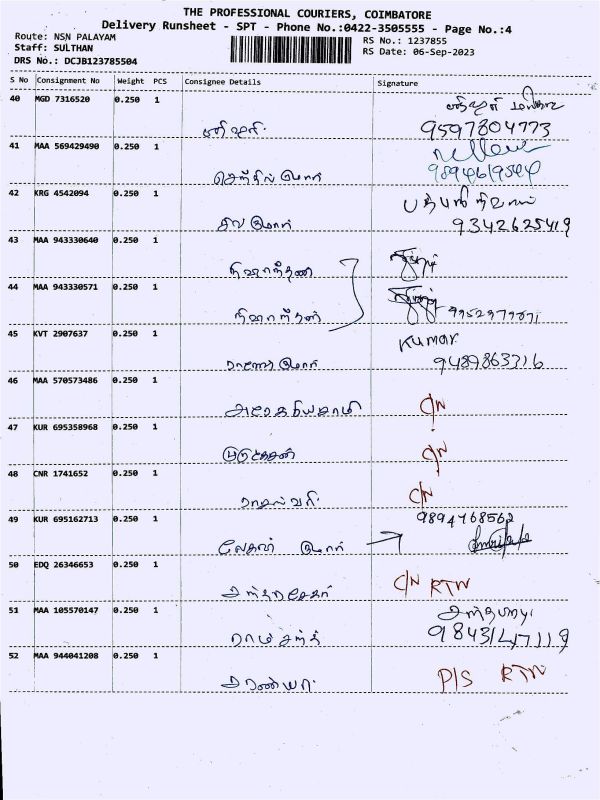 THE PROFESSIONAL COURIERS, COIMBATORE
Delivery Runsheet - SPT - Phone No.:0422-3505555 - Page No.:4
Route: NSN PALAYAM
RS No.: 1237855
Staff: SULTHAN
RS Date: 06-Sep-2023
DRS No.: DCJB123785504
S No Consignment No Weight PCS Consignee Details Signature
40 MGD 7316520 0.250 1
9597304773
41 MAA 569429490 0.250 1
செந்தில்குமார்
42 KRG 4542094 0.250 1
பத்மஸ்ரீநிவாஸ்
சிவகுமார்
9342625419
43 MAA 943330640 0.250 1
44 MAA 943330571 0.250 1
45 KVT 2907637 0.250 1
KUMAR
9489863316
46 MAA 570573486 0.250 1
C/N
47 KUR 695358968 0.250 1
முருகேசன்
C/N
48 CNR 1741652 0.250 1
C/N
49 KUR 695162713 0.250 1
9894768562
50 EDQ 26346653 0.250 1
சந்திரசேகர்
C/N RTN
51 MAA 105570147 0.250 1
9843147119
52 MAA 944041208 0.250 1
சரண்யா
P/S RTN